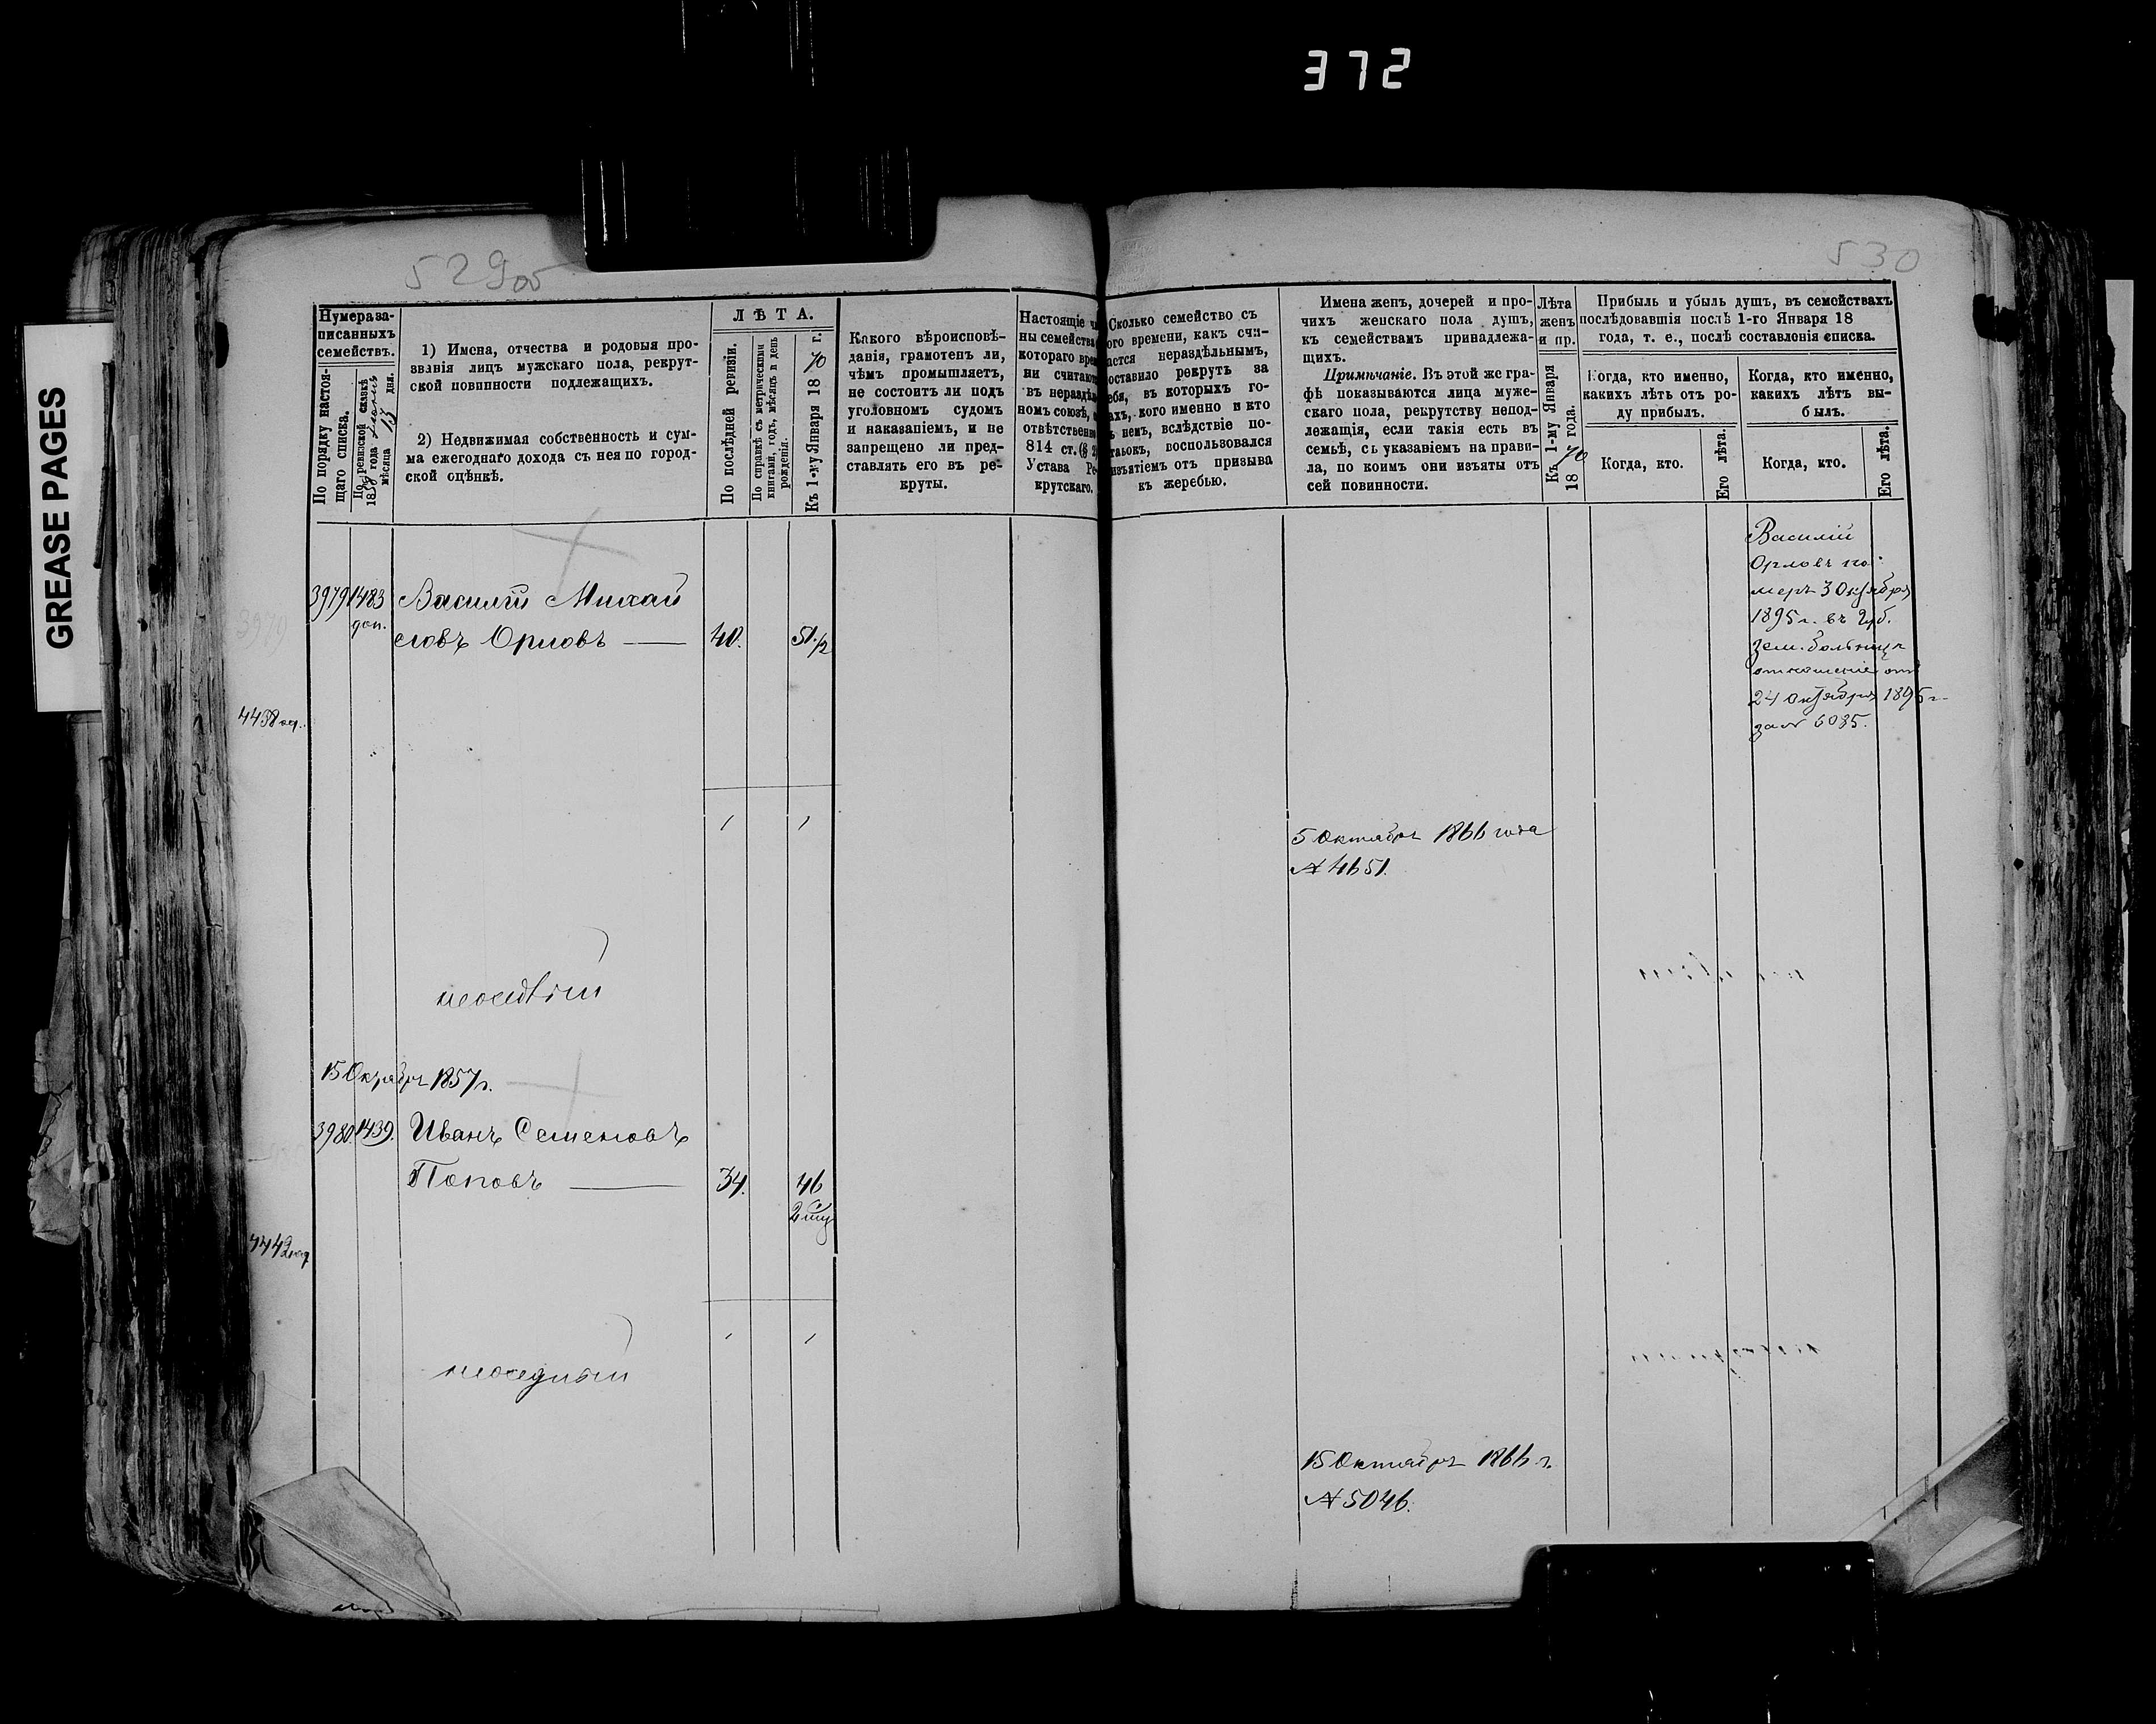 372
GREASE PAGES
529об
530
Нумера за-
писанныхъ
семействъ.
По порядку настоя-
щаго списка.
По ревизской сказкѣ
1858 года
мѣсяца 13 дня.
1) Имена, отчества и родовыя про-
званія лицъ мужскаго пола, рекрут-
ской повинности подлежащихъ.
2) Недвижимая собственность и сум-
ма ежегоднаго дохода съ нея по город-
ской оцѣнкѣ.
ЛѢТА.
По послѣдней ревизіи.
По справкѣ съ метрическими
книгами, годъ, мѣсяцъ и день
рожденія.
Къ 1-му Января 1870 г.
Какого вѣроисповѣ-
данія, грамотенъ ли,
чѣмъ промышляетъ,
не состоитъ ли подъ
уголовномъ судомъ
и наказаніемъ, и не
запрещено ли пред-
ставлять его въ ре-
круты.
Настоящіе
ны семейства
котораго вре
ни считают
въ нераздѣл
номъ союзѣ,
отвѣтственн
814 ст. (§
Устава Ре
крутскаго.
Сколько семейство съ
ого времени, какъ счи-
ается нераздѣльнымъ,
оставило рекрутъ за
ебя, въ которыхъ го-
ахъ, кого именно и кто
ъ немъ, вслѣдствіе по-
изъятіемъ отъ призыва
къ жеребью.
Имена женъ, дочерей и про-
чихъ женскаго пола душъ,
къ семействамъ принадлежа-
щихъ.
Примѣчаніе. Въ этой же гра-
фѣ показываются лица муже-
скаго пола, рекрутству непод-
лежащія, если такія есть въ
семьѣ, съ указаніемъ на прави-
ла, по коимъ они изъяты отъ
сей повинности.
Лѣта
женъ
и пр.
Къ 1-му Января
1870 года.
Прибыль и убыль душъ, въ семействахъ
послѣдовавшія послѣ 1-го Января 18
года, т. е., послѣ составленія списка.
Когда, кто именно,
какихъ лѣтъ отъ ро-
ду прибылъ.
Когда, кто.
Его лѣта.
Когда, кто именно,
какихъ лѣтъ вы-
былъ.
Когда, кто.
Его лѣта.
3979 1483 Василій Михай
доп.
ловъ Орловъ — 40. 51 1/2
3979
1 1
Василій
Орловъ по-
меръ 3 Октября
1895 г. въ Губ.
зем. больницѣ
отношеніе отъ
24 Октября 1895 г.
за № 6035.
5 Октября 1866 года
№ 4651.
15 Октября 1857 г.
3980. 1439. Иванъ Семеновъ
Поповъ — 34. 46
1 1
неоседлый
15 Октября 1866 г.
№ 5046.